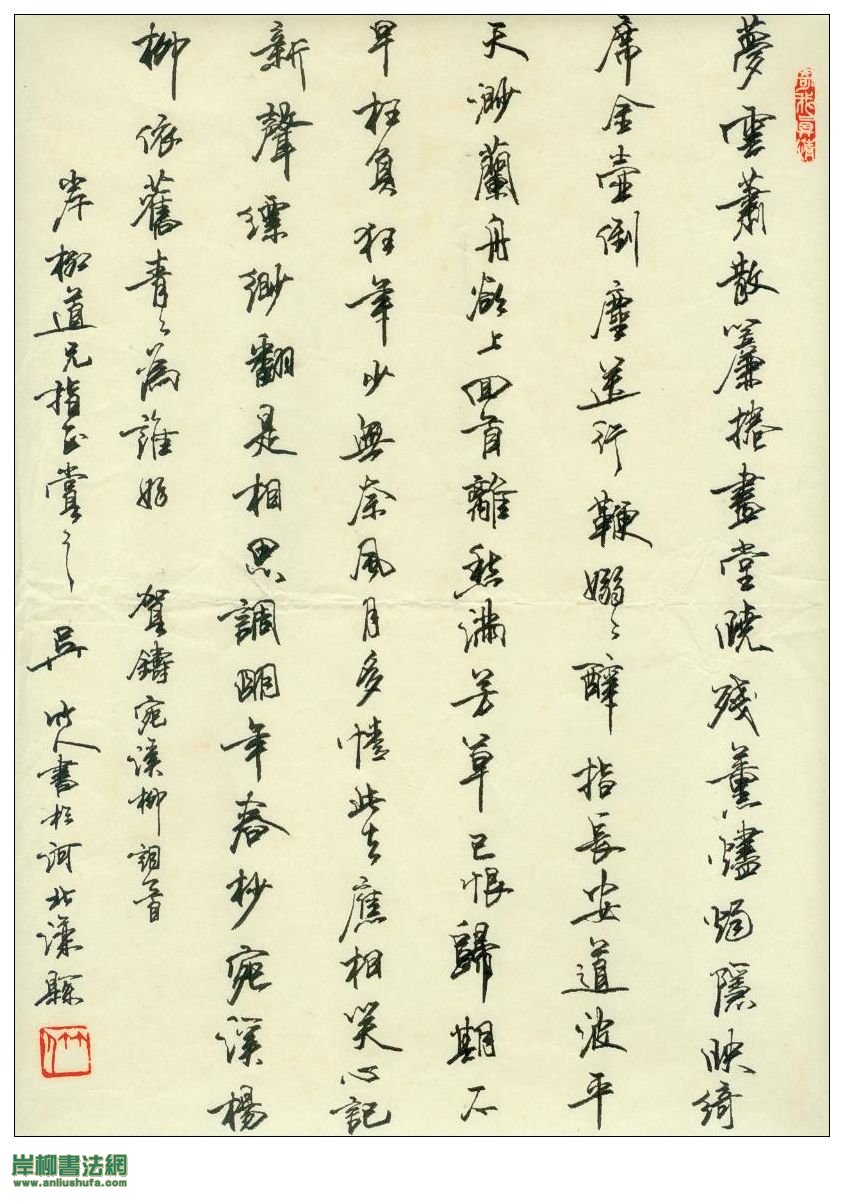 夢雲蕭散簾捲畫堂曉殘薰燼燭隱映綺
席金壺倒塵送行鞭嫋〻醉指長安道波平
天渺蘭舟欲上回首離愁滿芳草已恨歸期不
早枉負狂年少無奈風月多情此去應相笑心記
新聲縹緲翻是相思調明年春杪宛溪楊
柳依舊青〻為誰好
賀鑄宛溪柳詞一首
岸柳道兄指正賞之
吳竹人書於河北灤縣
岸柳書法網
www.anliushufa.com